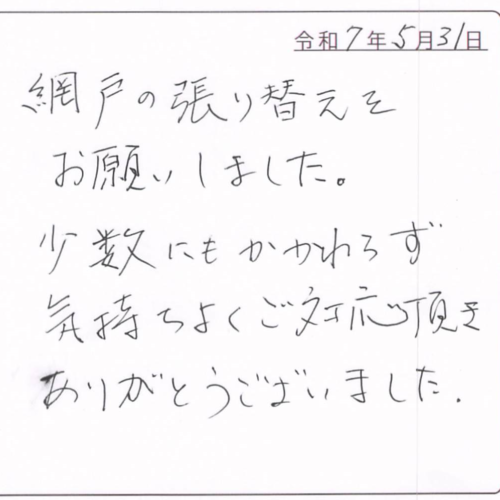 令和7年5月31日
網戸の張り替えを
お願いしました。
少数にもかかわらず
気持ちよくご対応頂き
ありがとうございました.